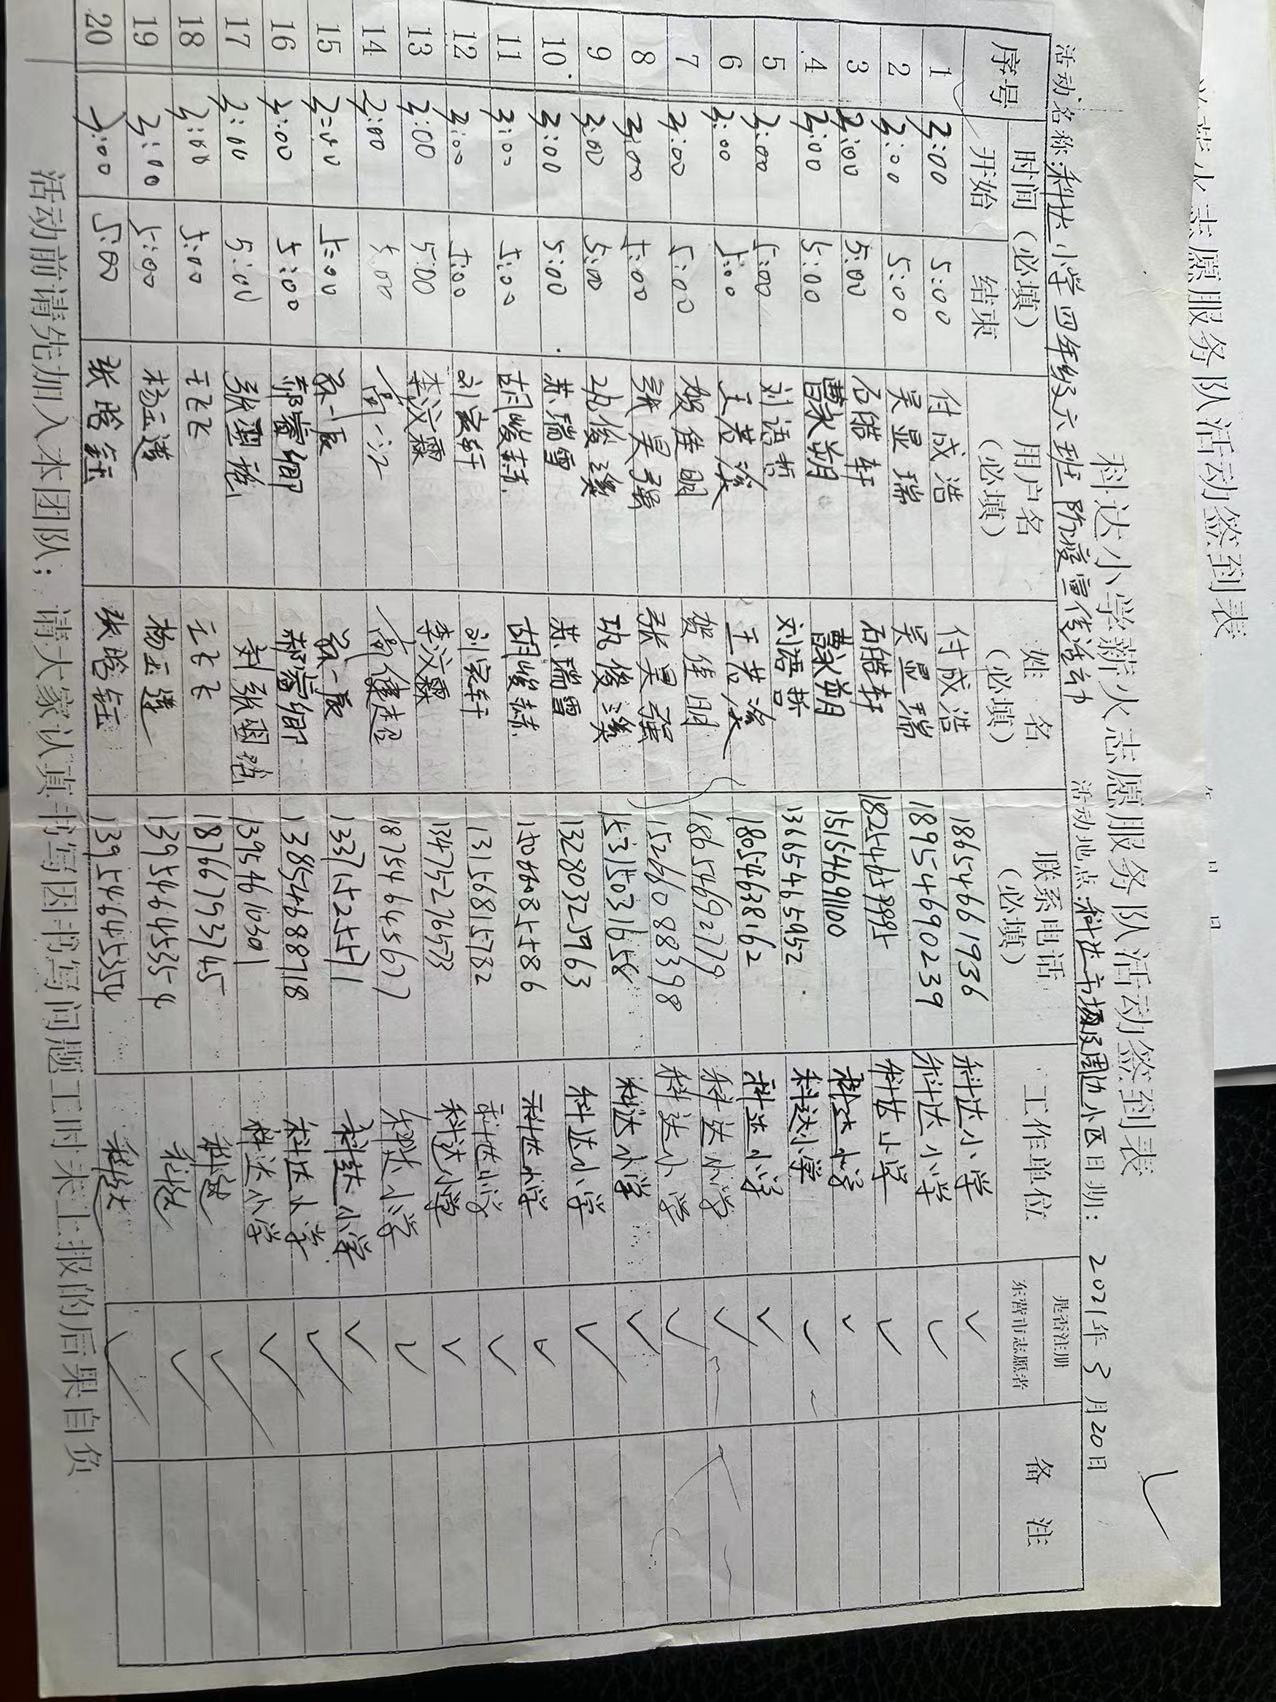 志愿服务队活动签到表
科达小学薪火志愿服务队活动签到表
活动名称:科达小学四年级六班防疫宣传活动 活动地点:科达市场及周边小区 日期: 2021年3月20日
序号 时间(必填) 用户名(必填) 姓名(必填) 联系电话(必填) 工作单位 是否注册东营市志愿者 备注
开始 结束
1 2:00 5:00 付成浩 付成浩 18654661936 科达小学 ✓
2 2:00 5:00 吴显瑞 吴显瑞 18954690239 科达小学 ✓
3 2:00 5:00 石皓轩 石皓轩 科达小学 ✓
4 2:00 5:00 曹永朔 曹永朔 15154691100 科达小学 ✓
5 2:00 5:00 刘语哲 刘语哲 13665465952 科达小学 ✓
6 2:00 5:00 18054638162 科达小学 ✓
7 2:00 5:00 贺佳明 贺佳明 18654692779 科达小学 ✓
8 2:00 5:00 张昊强 张昊强 15266088398 科达小学 ✓
9 2:00 5:00 巩俊 巩俊 15315031658 科达小学 ✓
10 2:00 5:00 苏瑞雪 苏瑞雪 13280325963 科达小学 ✓
11 2:00 5:00 胡峻赫 胡峻赫 科达小学 ✓
12 2:00 5:00 刘家轩 刘家轩 13156815782 科达小学 ✓
13 2:00 5:00 李汶霖 李汶霖 13475276573 科达小学 ✓
14 2:00 5:00 高一江 高健超 18754645677 科达小学 ✓
15 2:00 5:00 13371525571 科达小学 ✓
16 2:00 5:00 13854688718 科达小学 ✓
17 2:00 5:00 13954610301 科达小学 ✓
18 2:00 5:00 王飞飞 王飞飞 18766793745 科达 ✓
19 2:00 5:00 杨 杨 科达 ✓
20 2:00 5:00 张晗钰 张晗钰 13954645554 科达 ✓
活动前请先加入本团队;请大家认真书写因书写问题工时未上报的后果自负